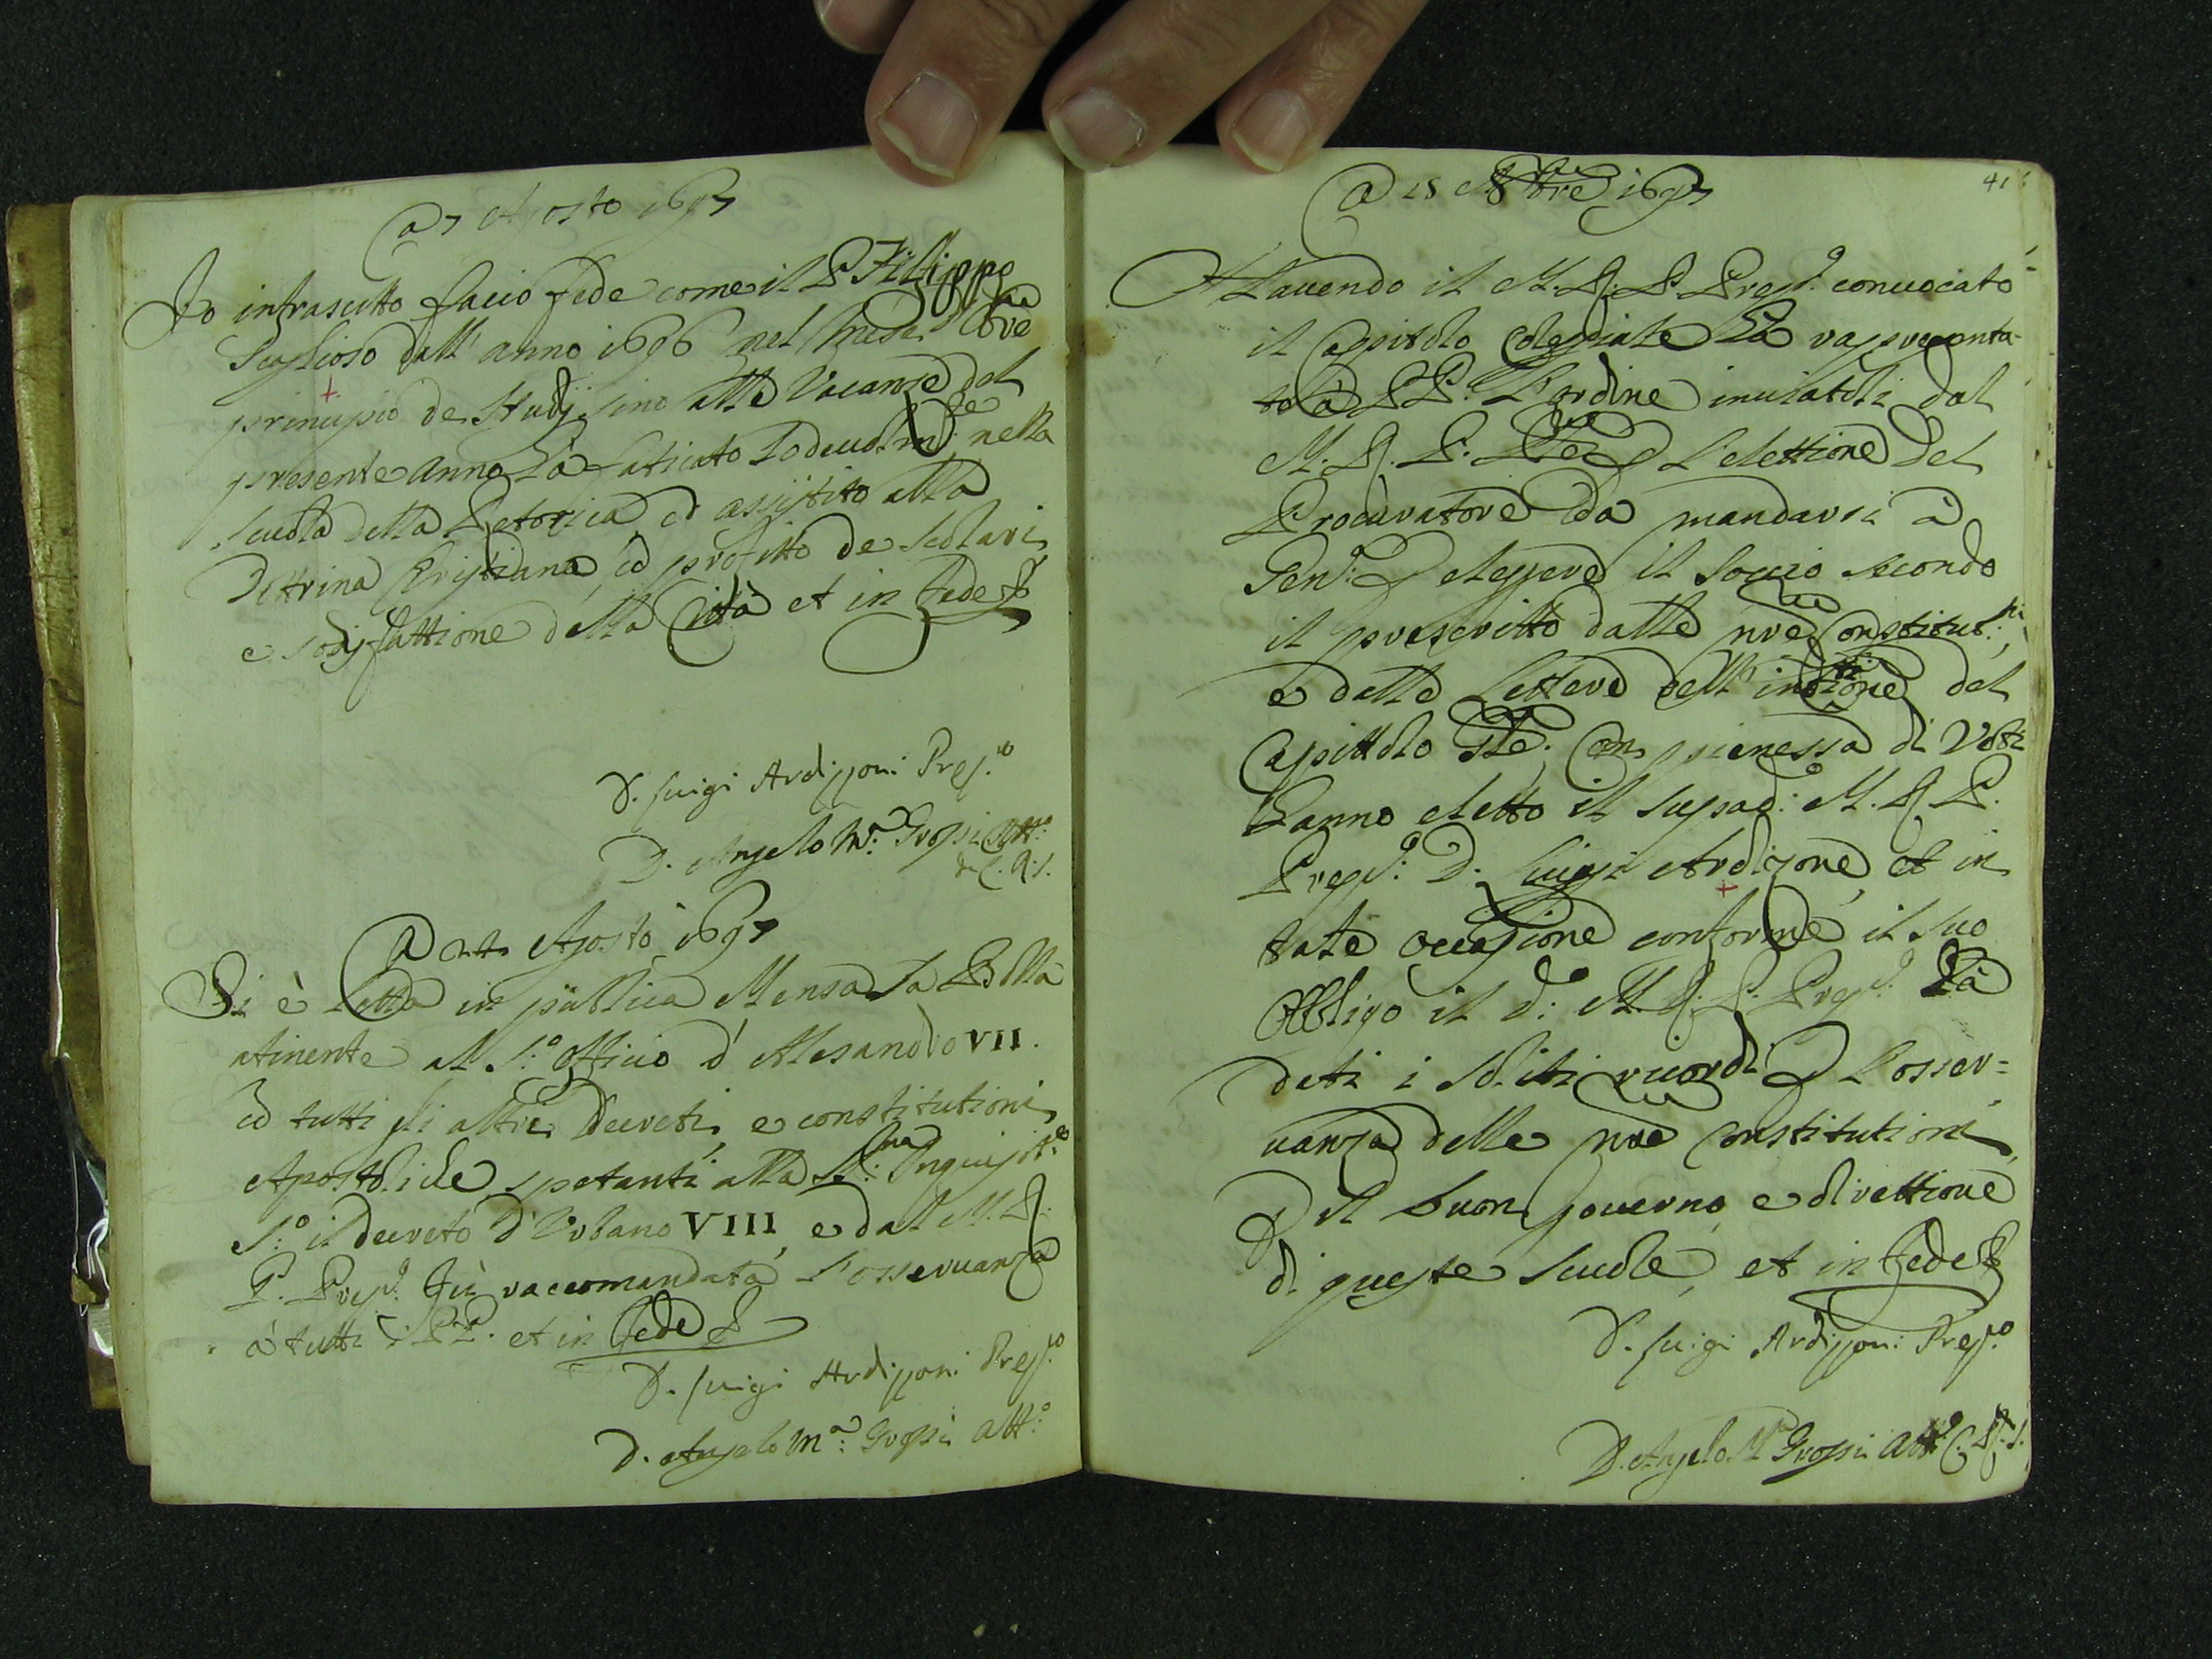 A 7 Agosto 1697
Io infrascritto faccio fede come il P. Filippo
Scoglioso dall' anno 1696 nel mese 9bre
principio de Studij sino alle Vacanze del
presente anno hà faticato lodevolm.te nella
scuola della Retorica, ed assistito alla
Dottrina Cristiana, ed profitto de Scolari
e sodisfattione della Città et in fede &
D. Luigi Ardizzoni Prep.to
D. Angelo M.a Grossi Att.o
del C. R. S.
A 22 Agosto 1697
Si è letta in publica Mensa la Bolla
atinente al S.o Officio d' Alesandro VII.
ed tutti gli altri Decreti, e constitutioni
Apostoliche spetanti alla S.ma Inquisit.e
S.o il Decreto d' Urbano VIII, e dal M. R.
P. Prep.o fù raccomandata l' osservanza
à tutti i PP. et in fede &
D. Luigi Ardizzoni Prep.to
D. Angelo M.a Grossi Att.o
41
A 15 9bre 1697
Havendo il M. R. P. Prep.o convocato
il Capitolo Collegiale hà rappresenta-
to à PP. l' ordine inviatoli dal
M. R. P. per l' elettione del
Procuratore da mandarsi à
Gen.o per eleggere il Socio secondo
il prescritto dalle nre Constitut.ni,
e dalle lettere dell' inditione del
Capittolo Gle. Con pienezza di Voti
hanno eletto il supad.o M. R. P.
Prep.o D. Luigi Ardizone, et in
tale occasione conforme il suo
Obligo il d.o M. R. P. Prep.o hà
dati i soliti ricordi per l' osser=
vanza delle nre Constitutioni,
per il buon governo, e direttione
di queste Scuole, et in fede &
D. Luigi Ardizzoni Prep.to
D. Angelo M.a Grossi Att.o C. R. S.